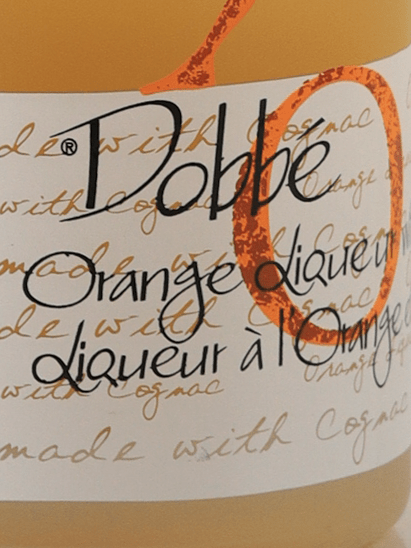 de with Cognac
® Dobbé
with Cognac Orange
made with Cog
Orange Liqueur
de with Cognac
Liqueur à l'Orange
with Cognac Orange
made with Cognac